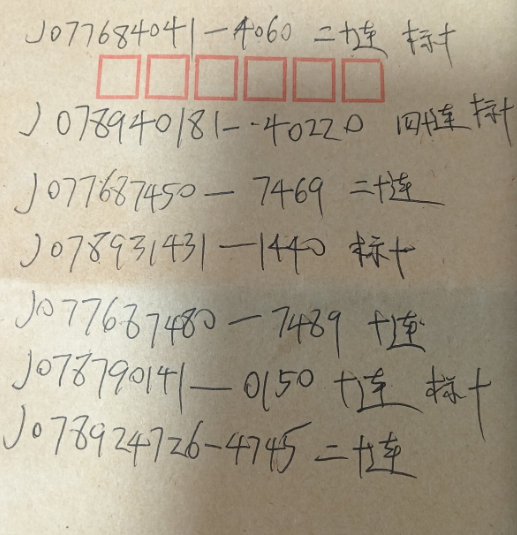 J077684041-4060 二十连 标十
J078940181-40220 四十连 标十
J077687450-7469 二十连
J078931431-1440 标十
J077687480-7489 十连
J078790141-0150 十连 标十
J078924726-4745 二十连